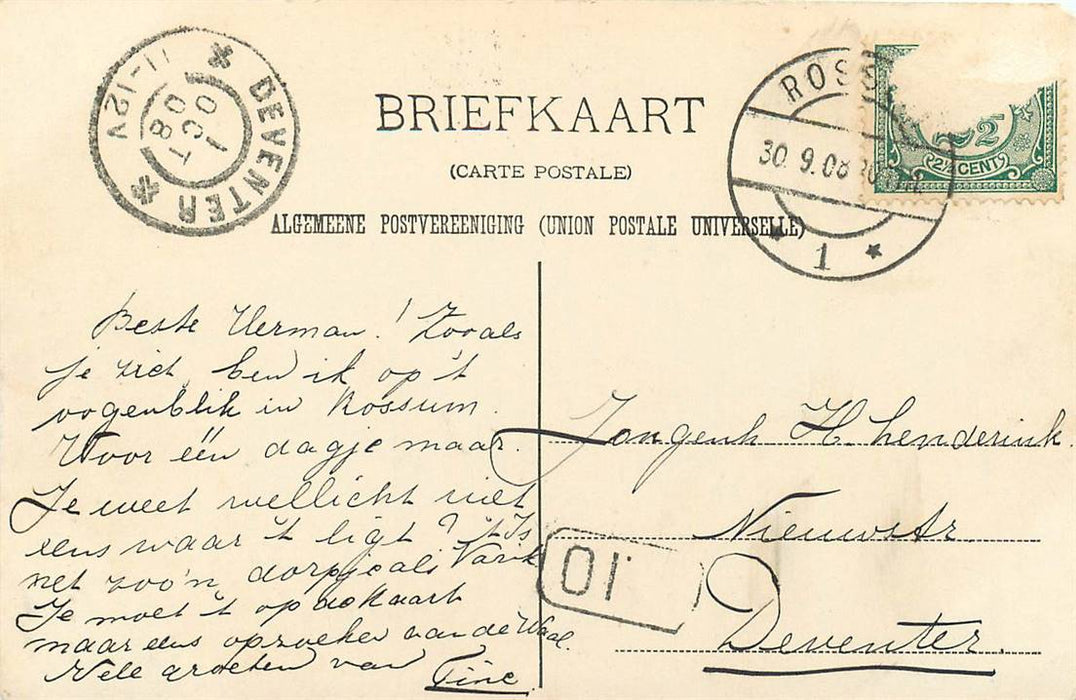 BRIEFKAART
(CARTE POSTALE)
ALGEMEENE POSTVEREENIGING (UNION POSTALE UNIVERSELLE)
DEVENTER
11-12V
1 OCT 08
ROS
30.9.08
1
2½
2½ CENT
Beste Herman! Zooals
je ziet, ben ik op 't
oogenblik in Rossum.
Voor één dagje maar.
Je weet wellicht niet
eens waar 't ligt? 't Is
net zoo'n dorpje als Varik
Je moet 't op de Kaart
maar eens opzoeken van de Waal.
Vele groeten van Tine
Jongenh H. Lenderink.
Nieuwstr.
Deventer.
10